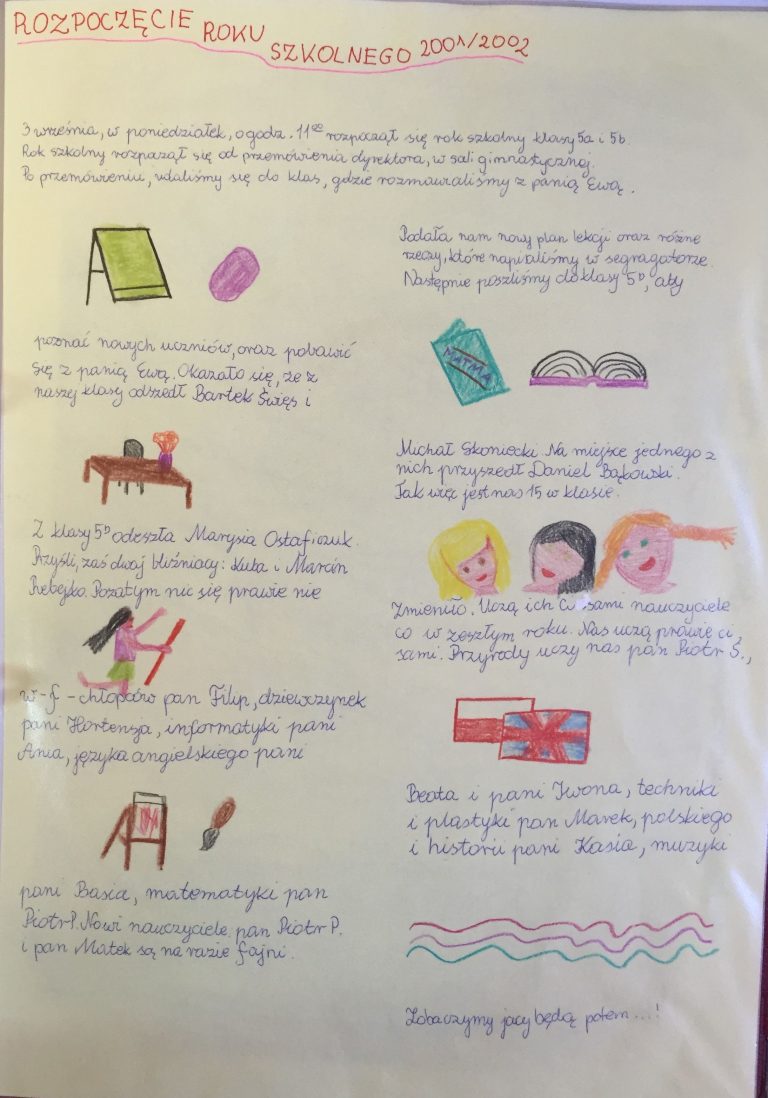 ROZPOCZĘCIE ROKU SZKOLNEGO 2001/2002
3 września, w poniedziałek, o godz. 11⁰⁰ rozpoczął się rok szkolny klasy 5a i 5b.
Rok szkolny rozpoczął się od przemówienia dyrektora, w sali gimnastycznej.
Po przemówieniu, udaliśmy się do klas, gdzie rozmawialiśmy z panią Ewą.
Podała nam nowy plan lekcji oraz różne
rzeczy, które napisaliśmy w segragatorze.
Następnie poszliśmy do klasy 5ᵇ, aby
poznać nowych uczniów, oraz pobawić
się z panią Ewą. Okazało się, że z
naszej klasy odszedł Bartek Święs i
MATMA
Michał Skoniecki. Na miejsce jednego z
nich przyszedł Daniel Bąkowski.
Tak więc jest nas 15 w klasie.
Z klasy 5ᵇ odeszła Marysia Ostaficzuk.
Przyśli, zaś dwaj bliźniacy: Kuba i Marcin
Rebejko. Pozatym nic się prawie nie
zmieniło. Uczą ich ci sami nauczyciele
co w zeszłym roku. Nas uczą prawie ci
sami. Przyrody uczy nas pan Piotr S.,
w-f - chłopców pan Filip, dziewczynek
pani Hortensja, informatyki pani
Ania, języka angielskiego pani
Beata i pani Iwona, techniki
i plastyki pan Marek, polskiego
i historii pani Kasia, muzyki
pani Basia, matematyki pan
Piotr P. Nowi nauczyciele pan Piotr P.
i pan Marek są na razie fajni.
Zobaczymy jacy będą potem...!